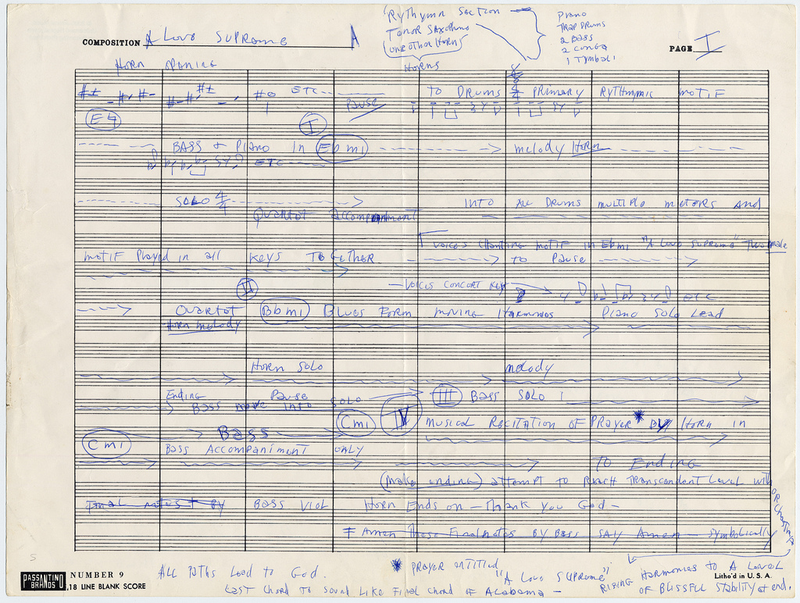 Rythymn Section
Tenor Saxophone
1 one other Horn
Horns
Piano
Trap Drums
2 Bass
2 Conga
1 Tymbali
COMPOSITION A Love Supreme A
PAGE I
Horn opening
ETC
Pause
TO DRUMS 4/4 PRIMARY RYTHMMIC MOTIF
E♮
I
BASS & PIANO In Ebmi
melody Horn
ETC
SOLO 4/4
Quartet accompaniment
INTO ALL DRUMS MULTIPLE METERS AND
VOICES CHANTING MOTIF IN Ebmi "A Love Supreme"
motif Played in all KEYS TOGETHER
TO PAUSE
VOICES CONCERT KEY
ETC
II
Quartet Bbmi Blues Form moving Harmonies Piano Solo Lead
Horn melody
Horn Solo melody
Ending Pause
Bass move into solo III Bass Solo
Bass Cmi IV MUSICAL RECITATION OF PRAYER * BY HORN in
Cmi
BASS ACCOMPANIMENT ONLY
TO Ending
(make ending) attempt to Reach Transcendent Level with ORCHESTRA
Final notes BY BASS VIOL Horn Ends on - Thank you God -
Amen These Final notes BY Bass SAY Amen - symbolically
* PRAYER entitled
"A Love Supreme"
RISING HARMONIES TO A LEVEL
OF BLISSFUL STABILITY at end.
ALL PATHS Lead to God.
Last Chord to Sound Like Final Chord of Alabama -
5
PASSANTINO
BRANDS
NUMBER 9
18 LINE BLANK SCORE
Litho'd in U.S.A.